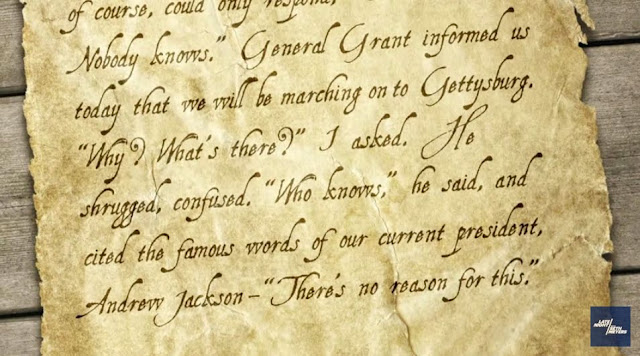 of course, could only respond,
Nobody knows." General Grant informed us
today that we will be marching on to Gettysburg.
"Why? What's there?" I asked. He
shrugged, confused. "Who knows," he said, and
cited the famous words of our current president,
Andrew Jackson – "There's no reason for this."
LATE NIGHT
SETH MEYERS